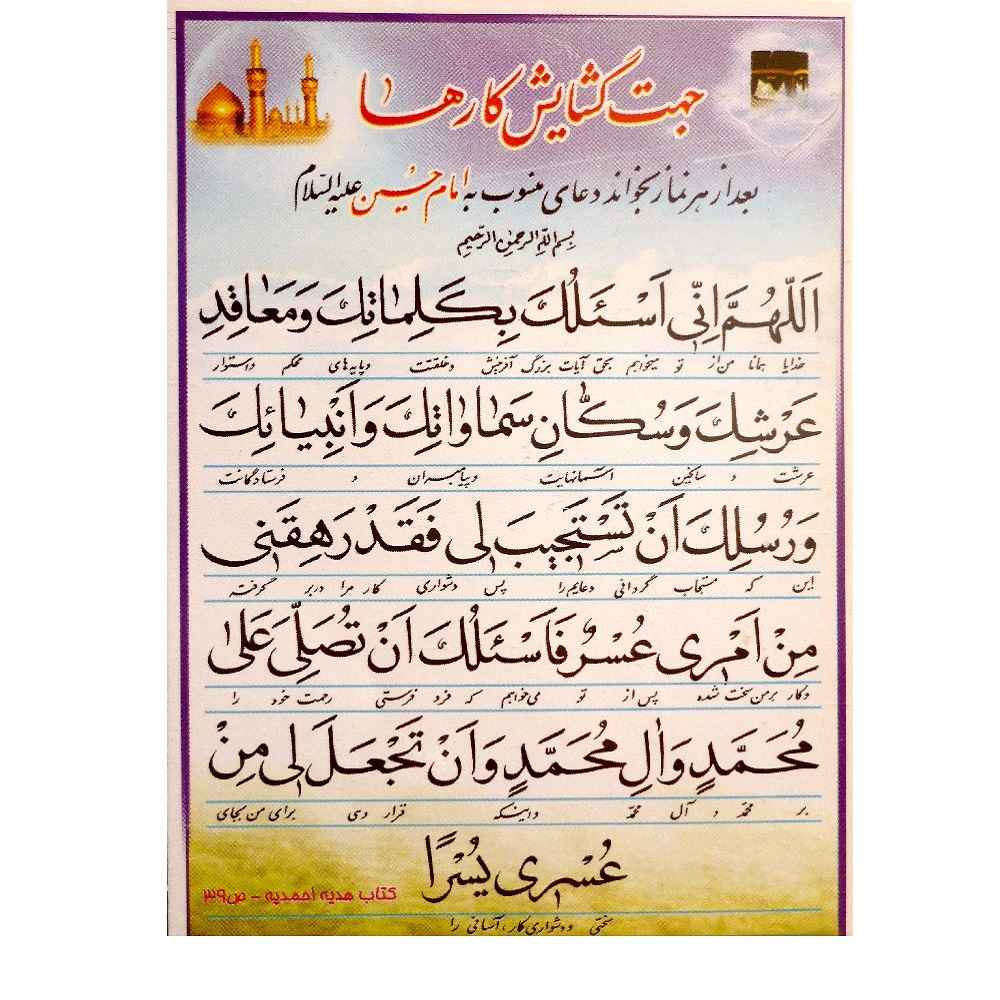 جهت گشایش کارها
بعد از هر نماز بخواند دعای منسوب به امام حسین علیه السلام
بسم الله الرحمن الرحیم
اَللّهُمَّ اِنّی اَسْئَلُكَ بِكَلِماتِكَ وَ مَعاقِدِ
خدایا همانا من از تو میخواهم بحق آیات بزرگ آفرینش و خلقتت و پایه های محکم و استوار
عَرْشِكَ وَ سُكّانِ سَماواتِكَ وَ اَنْبِیائِكَ
عرشت و ساکنین آسمانهایت و پیامبران و فرستادگانت
وَ رُسُلِكَ اَنْ تَسْتَجیبَ لی فَقَدْ رَهِقَنی
این که مستجاب گردانی دعایم را پس دشواری کار مرا در بر گرفته
مِنْ اَمْری عُسْرٌ فَاَسْئَلُكَ اَنْ تُصَلِّیَ عَلی
و کار بر من سخت شده پس از تو می‌خواهم که فرو فرستی رحمت خود را
مُحَمَّدٍ وَ الِ مُحَمَّدٍ وَ اَنْ تَجْعَلَ لی مِنْ
بر محمّد و آل محمّد و اینکه قرار دهی برای من بجای
عُسْری یُسْرًا
کتاب هدیه احمدیه - ص۳۹
سختی و دشواری کار، آسانی را